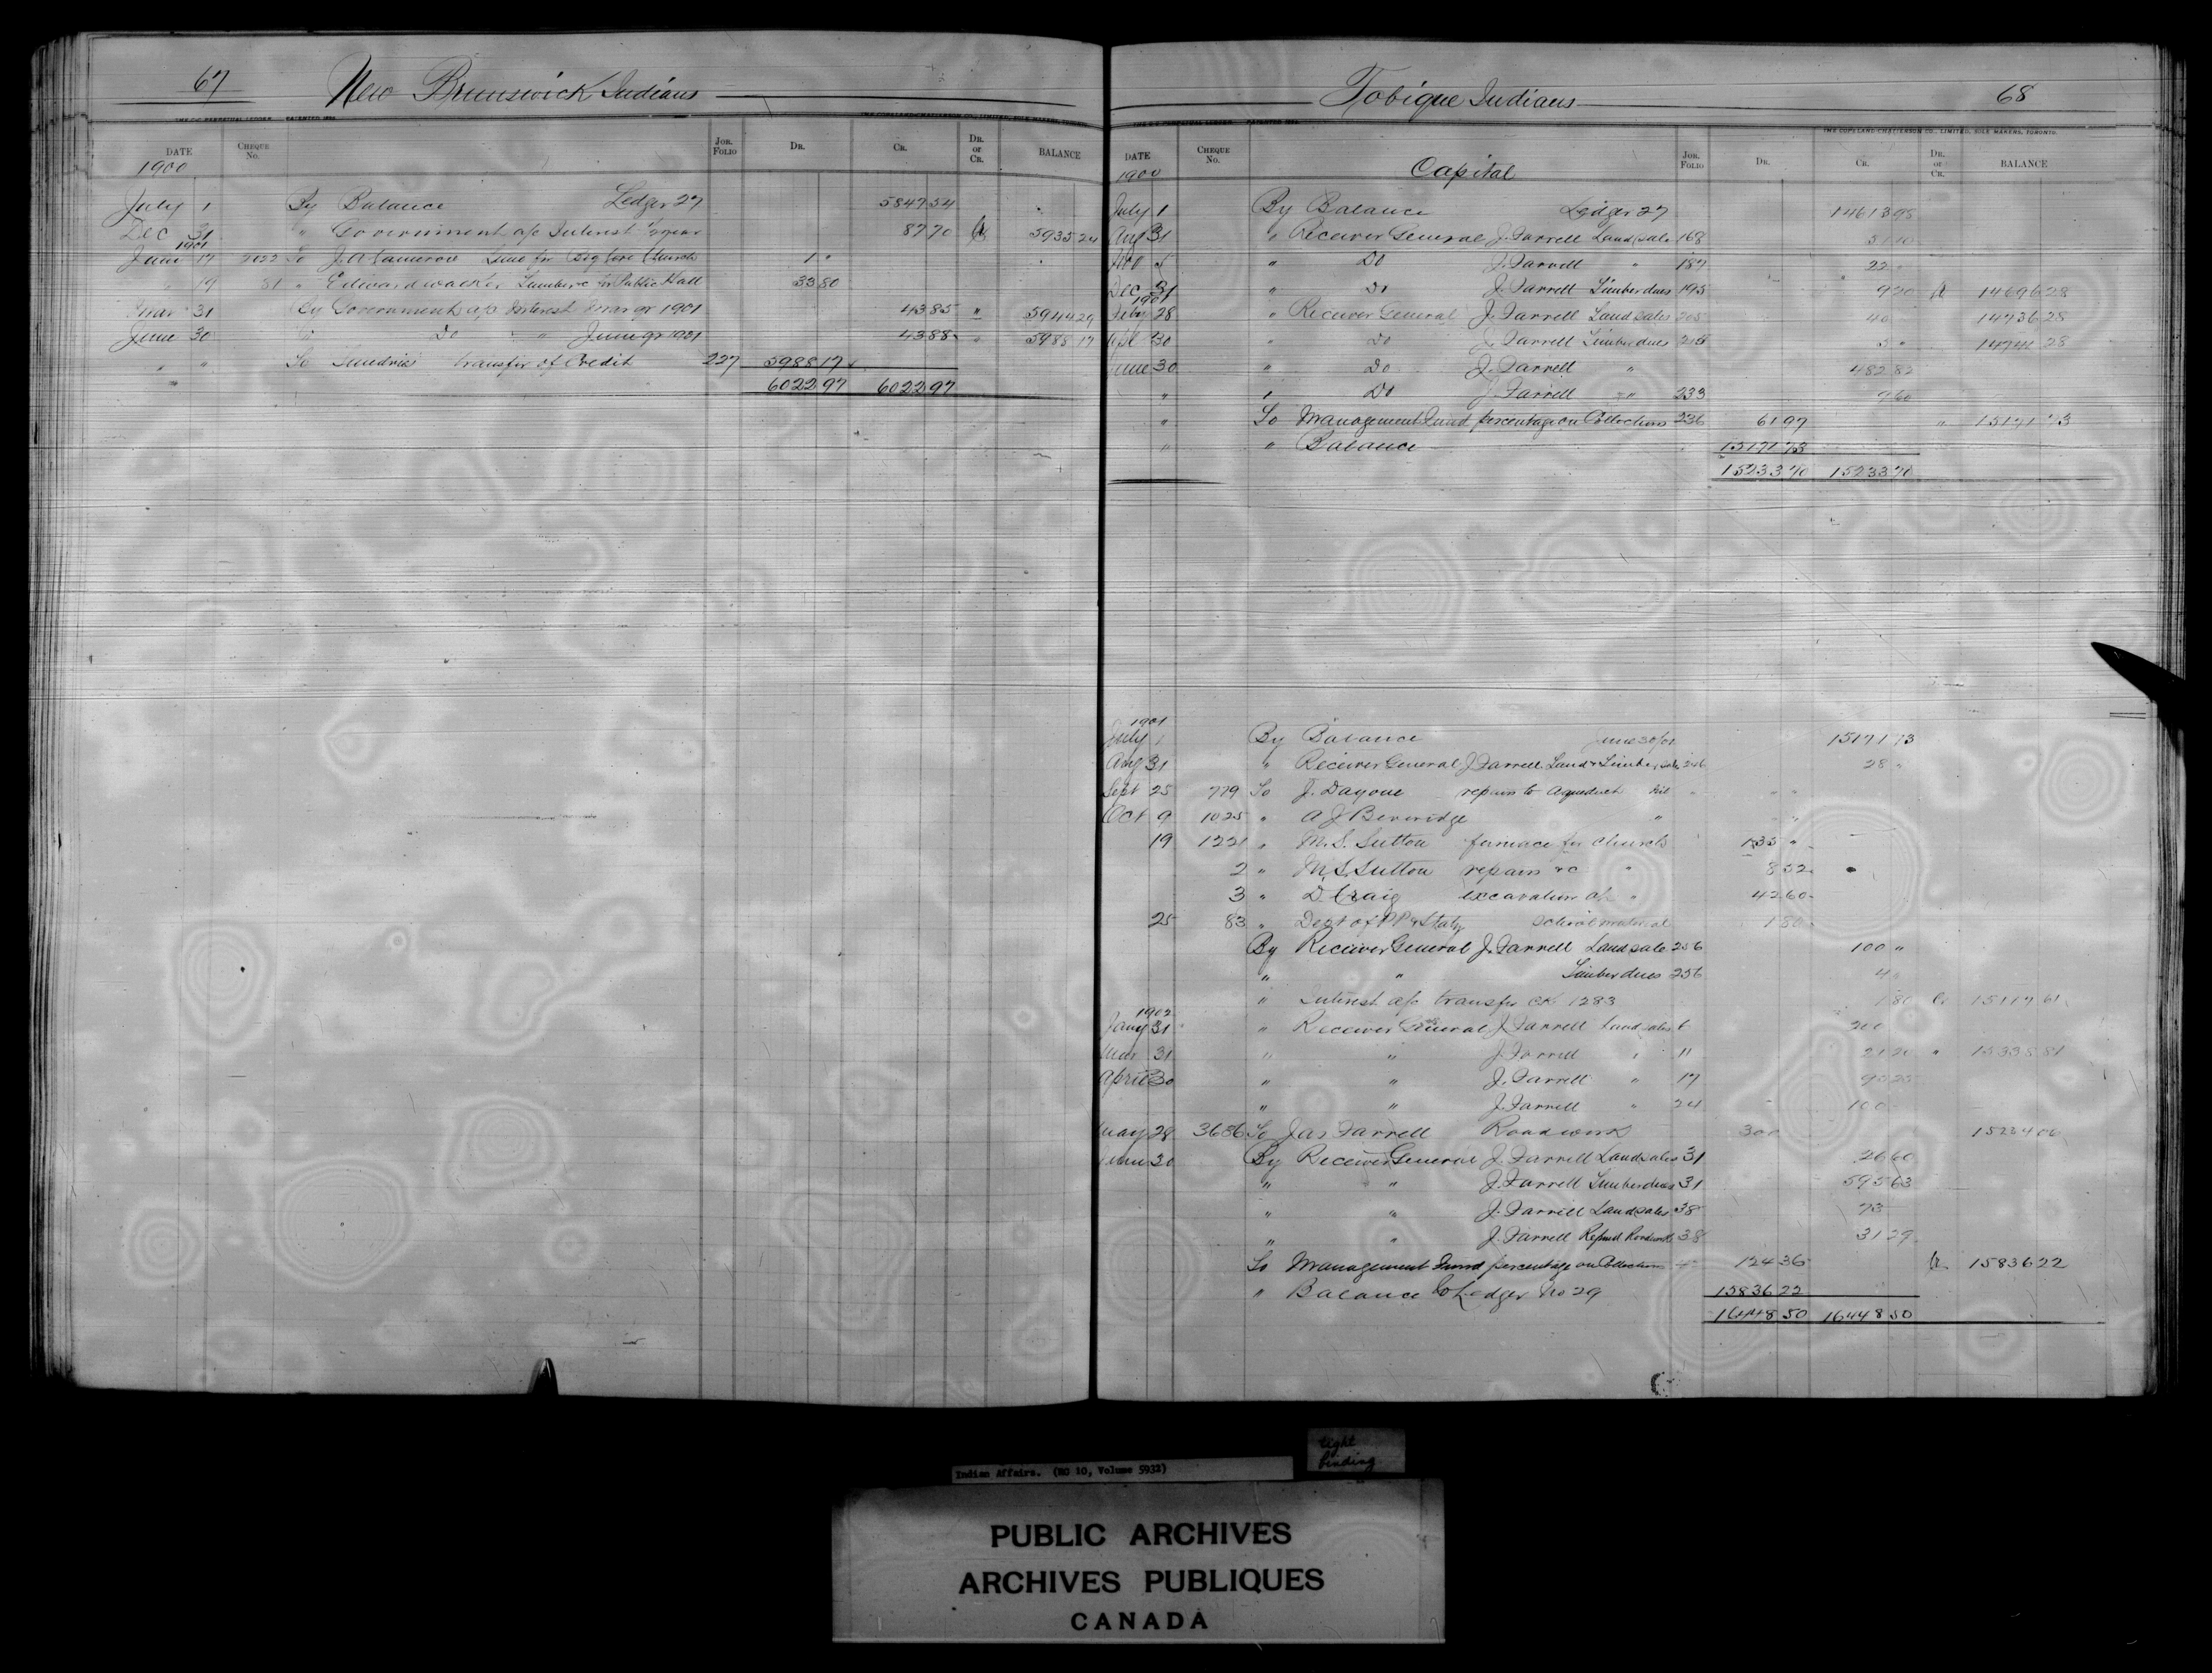 67
New Brunswick Indians
THE C-C PERPETUAL LEDGER PATENTED
THE COPELAND-CHATTERSON CO., LIMITED, SOLE MAKERS, TORONTO.
DATE CHEQUE No. JOR. FOLIO DR. CR. DR. OR CR. BALANCE
1900
July 1 By Balance Ledger 27 5847 54
Dec 31 " Government a/c Interest ½ year 87 70 Cr 5935 24
1901
17 2022 To J. A Cameron for Church 1 "
" 19 81 " Edward Lumber &c for Public Hall 33 80
Mar 31 By Government a/c Interest Mar qr 1901 43 85 " 5944 29
June 30 " Do " June qr 1901 43 88 " 5988 17
" " To Sundries transfer of Credit 227 5988 17
" 6022 97 6022 97
Tobique Indians
68
THE COPELAND-CHATTERSON CO., LIMITED, SOLE MAKERS, TORONTO.
DATE CHEQUE No. Capital JOR. FOLIO DR. CR. DR. OR CR. BALANCE
1900
July 1 By Balance Ledger 27 14613 98
Aug 31 " Receiver General J. Farrell Land sale 168 51 10
" Do J. Farrell " 187 22 "
Dec 31 " Do J. Farrell Timber dues 195 9 20 Cr 14696 28
1901
Feby 28 " Receiver General J. Farrell Land sales 205 40 14736 28
Apl 30 " Do J. Farrell Timber dues 215 5 " 14741 28
June 30 " Do J. Farrell " 482 82
" " Do J. Farrell " 233 9 60
" To Management Fund percentage on Collections 236 61 97 " 15171 73
" " Balance 15171 73
15233 70 15233 70
1901
July 1 By Balance June 30/01 15171 73
Aug 31 " Receiver General J. Farrell Land & Timber sale 246 28 "
Sept 25 779 To J. Dayoue repairs to Aqueduct
Oct 9 1025 " A J Beveridge " "
19 1221 " M. S. Sutton furnace for Church 135 "
2 " M. S. Sutton repairs &c " 8 52
3 " D. Craig excavation of " 42 60
25 83 " Dept of P P & Staty School material 1 80
By Receiver General J. Farrell Land sale 256 100 "
" " Timber dues 256 4 "
" Interest a/c transfer CK 1283 1 80 Cr 15117 61
1902
Jany 31 " Receiver General J. Farrell Land sales 6 200
Mar 31 " " J. Farrell " 11 21 20 " 15338 81
April 30 " " J. Farrell " 17 95 25
" " J. Farrell " 24 100
May 28 3686 To Jas Farrell Road work 300 15234 06
June 30 By Receiver General J. Farrell Land sales 31 26 60
" " J. Farrell Timber dues 31 595 63
" " J. Farrell Land sales 38 73
" " J. Farrell Refund Roadwork 38 31 29
To Management Fund percentage on Collections 124 36 Cr 15836 22
" Balance to Ledger No 29 15836 22
16448 50 16448 50
Indian Affairs. (RG 10, Volume 5932)
tight
binding
PUBLIC ARCHIVES
ARCHIVES PUBLIQUES
CANADA